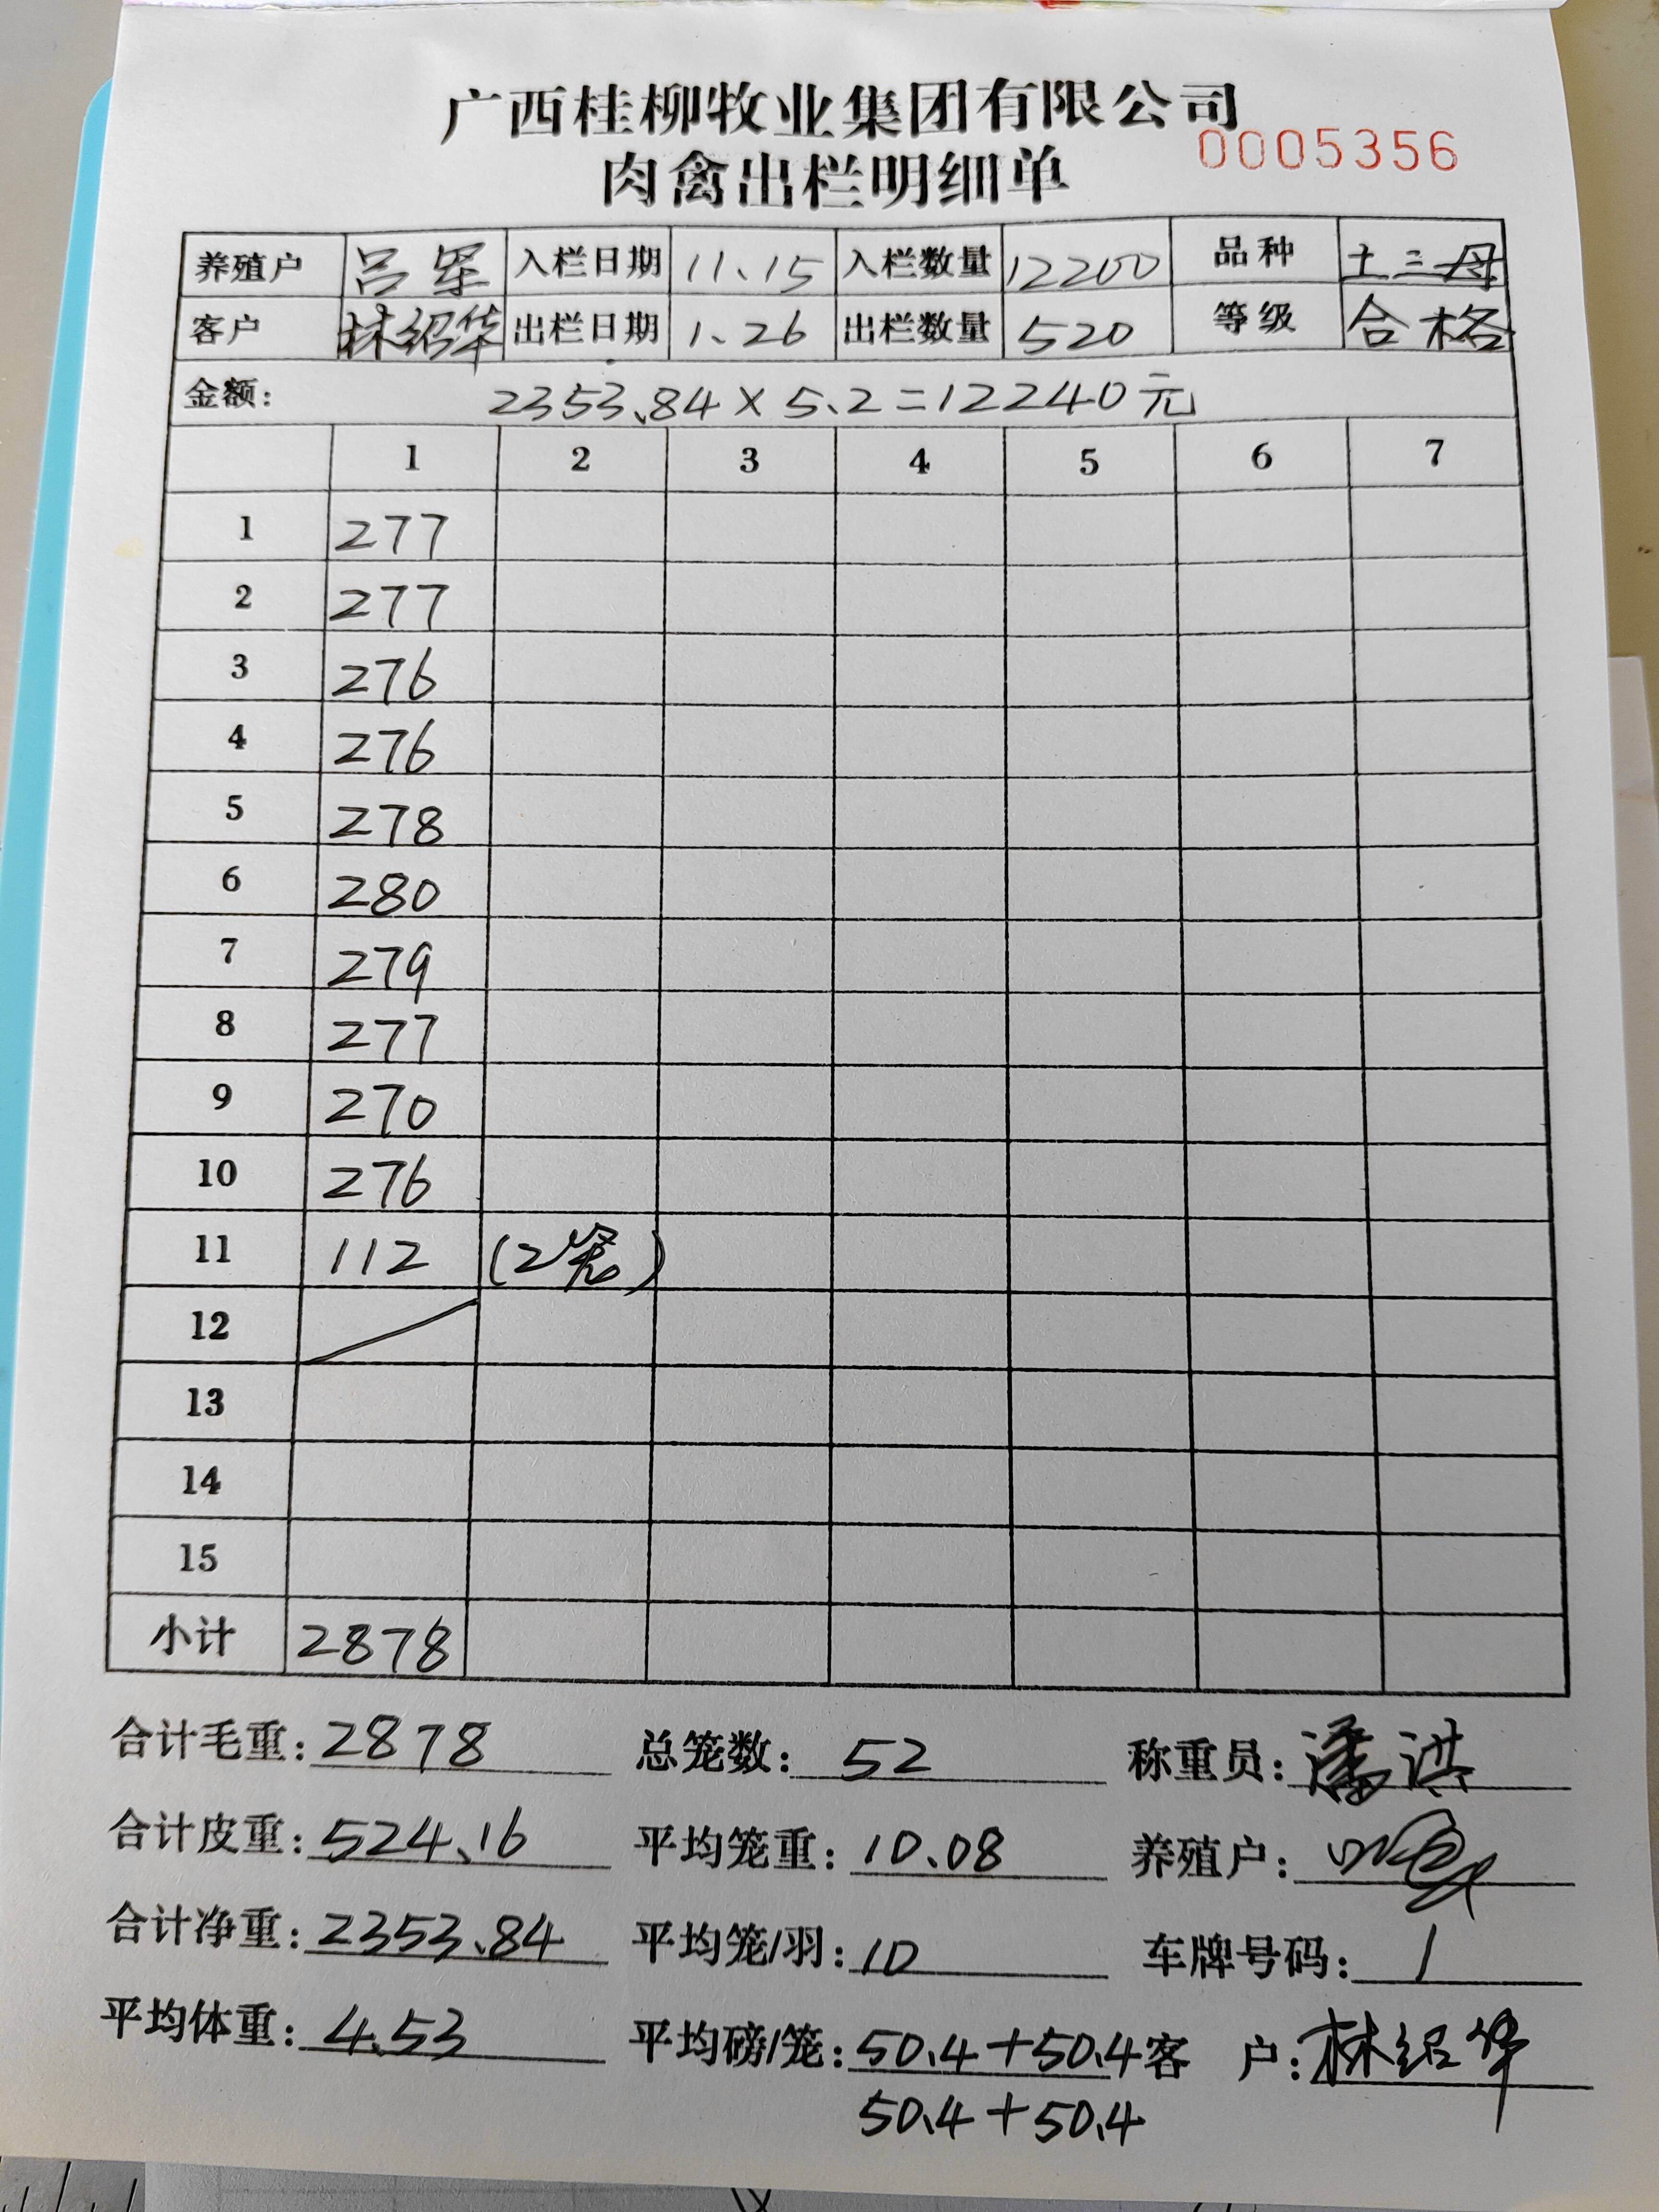 广西桂柳牧业集团有限公司
0005356
肉禽出栏明细单
养殖户 吕军 入栏日期 11、15 入栏数量 12200 品种 土二母
客户 林绍华 出栏日期 1、26 出栏数量 520 等级 合格
金额： 2353、84×5、2=12240元
1 2 3 4 5 6 7
1 277
2 277
3 276
4 276
5 278
6 280
7 279
8 277
9 270
10 276
11 112 (2笼)
12
13
14
15
小计 2878
合计毛重：2878 总笼数：52 称重员：潘洪
合计皮重：524、16 平均笼重：10、08 养殖户：
合计净重：2353、84 平均笼/羽：10 车牌号码：1
平均体重：4、53 平均磅/笼：50、4+50、4 客 户：林绍华
50、4+50、4